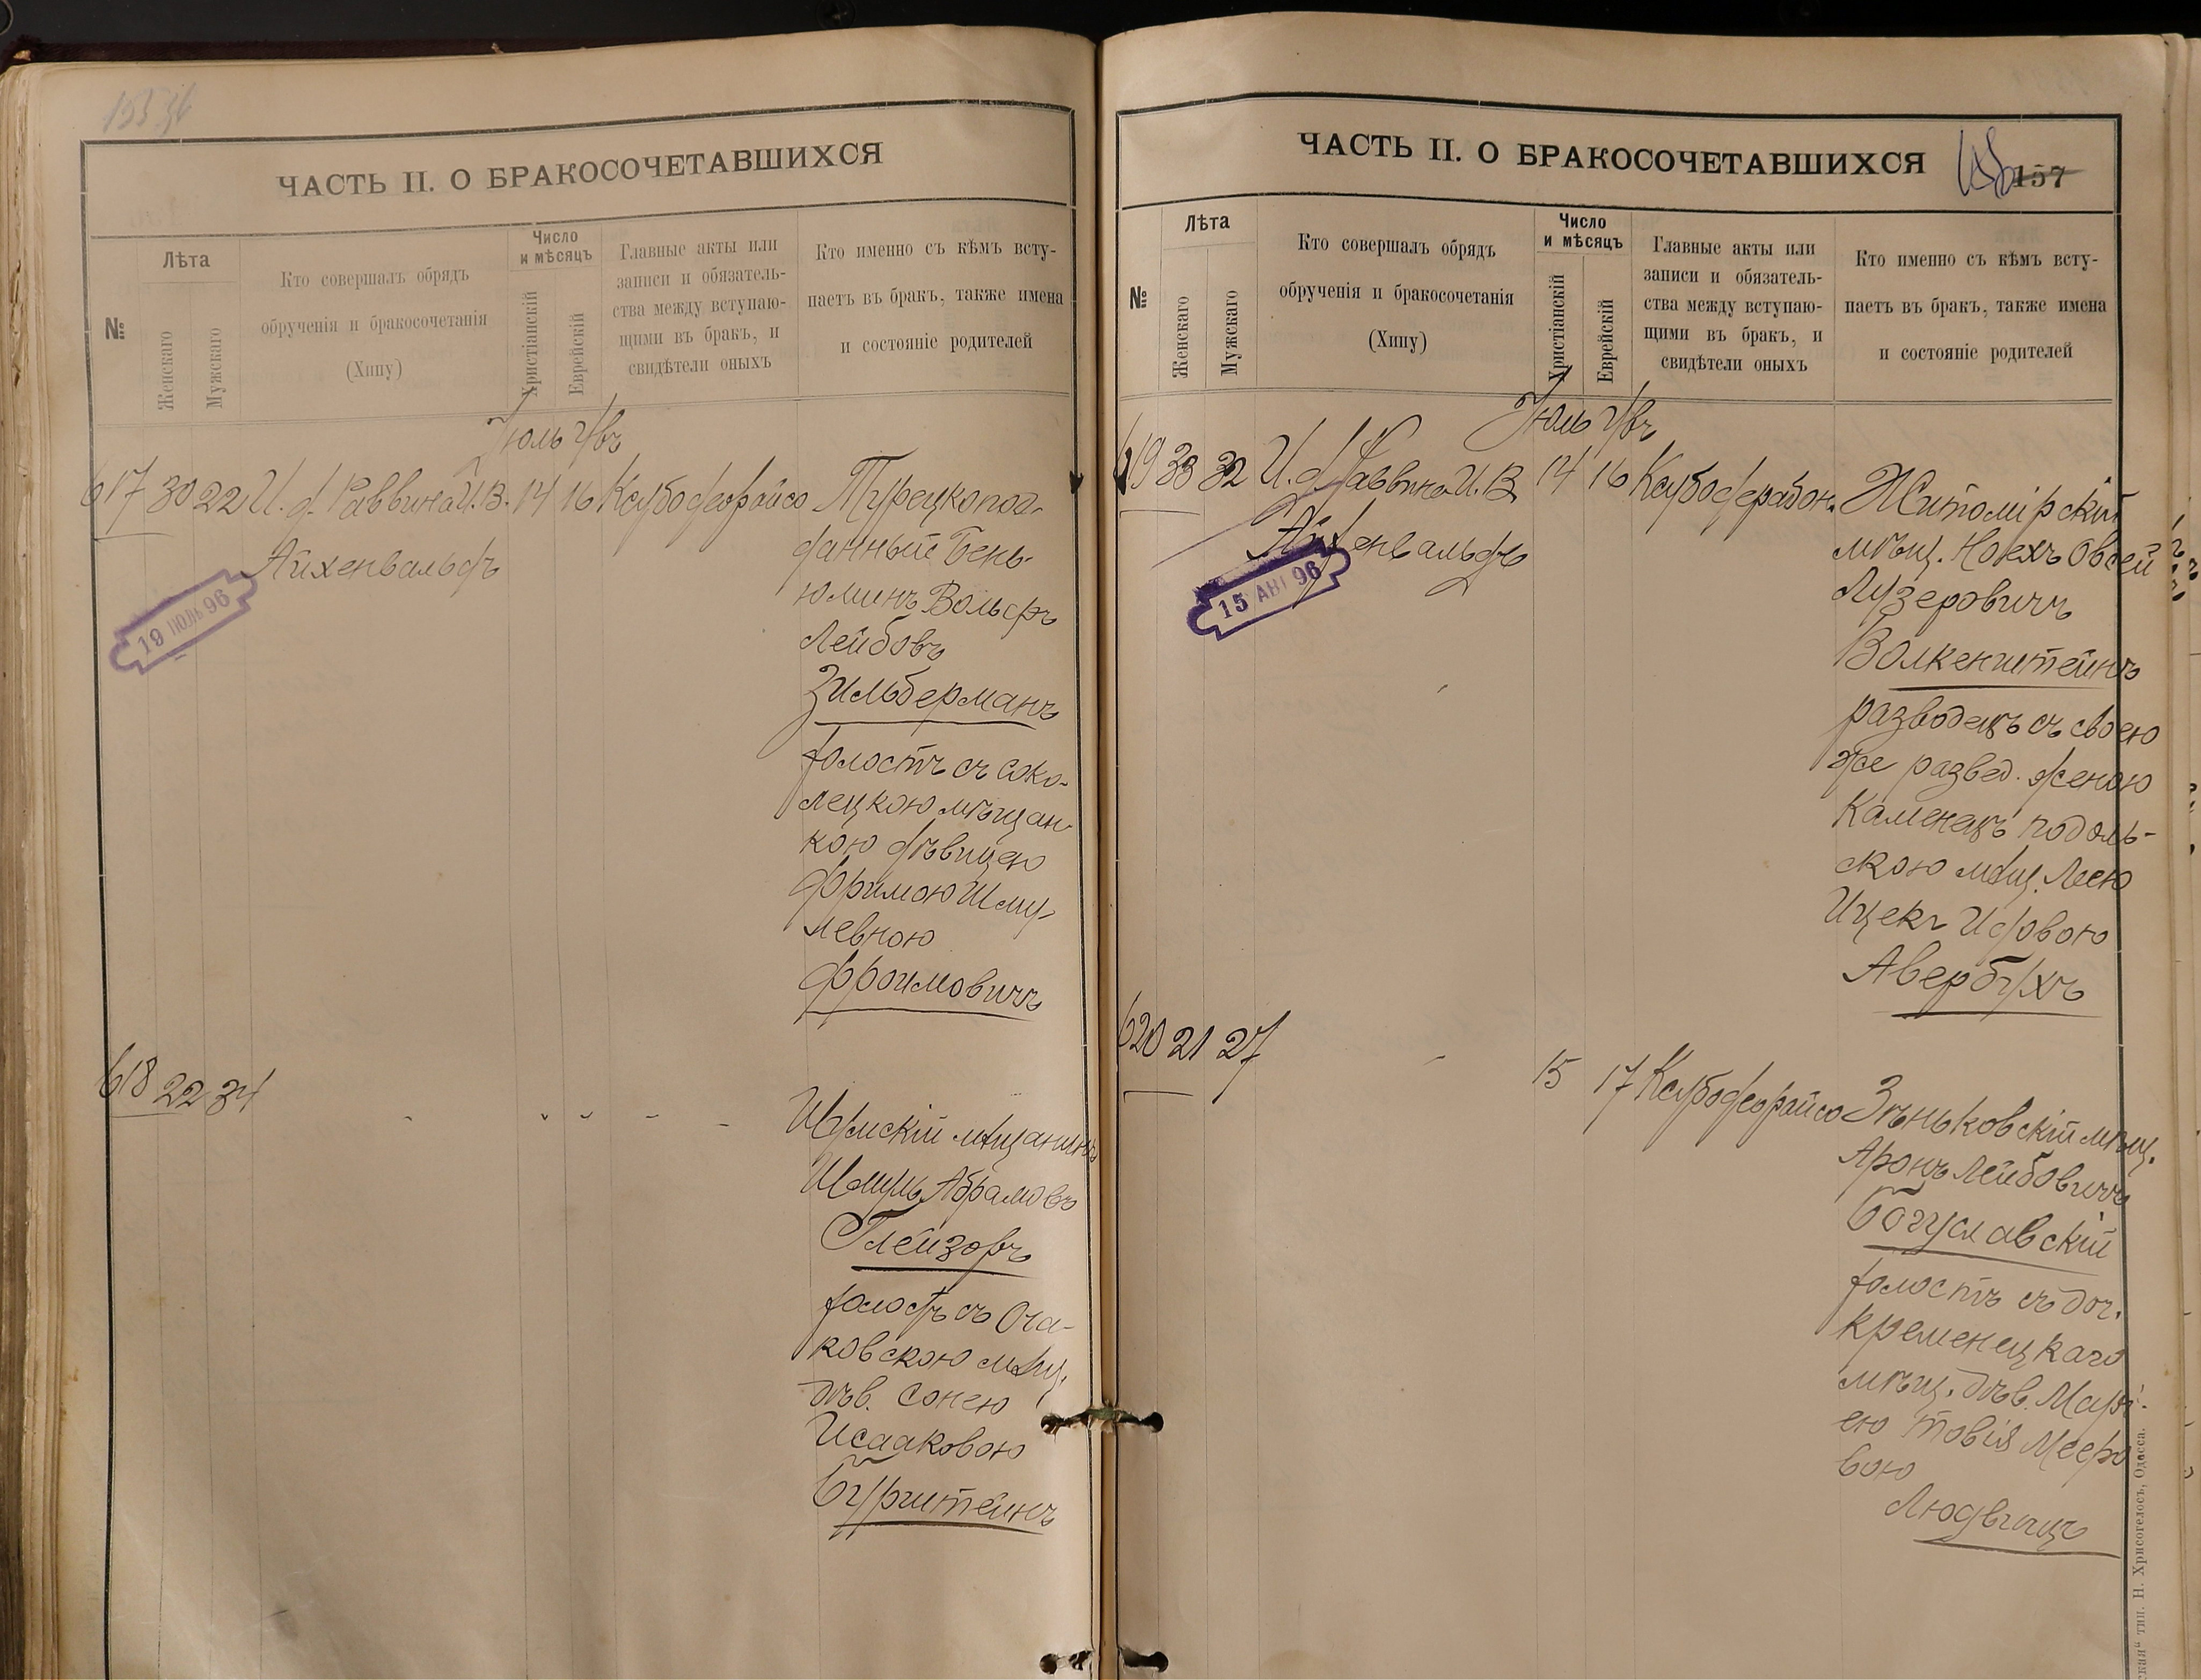 ЧАСТЬ II. О БРАКОСОЧЕТАВШИХСЯ
№
Лѣта
Женскаго
Мужскаго
Кто совершалъ обрядъ
обрученія и бракосочетанія
(Хипу)
Число
и мѣсяцъ
Христіанскій
Еврейскій
Главные акты или
записи и обязатель-
ства между вступаю-
щими въ бракъ, и
свидѣтели оныхъ
Кто именно съ кѣмъ всту-
паетъ въ бракъ, также имена
и состояніе родителей
Іюль Увъ
617 30 22 И. д. Раввина И. В. 14 16 Ксубодеорайсо Турецкопод-
Айхенвальдъ
19 ІЮЛЬ 96
данный Бень-
юминъ Вольфъ
Лейбовъ
Зильберманъ
холостъ съ соко-
лецкою мѣщан-
кою дѣвицею
Фримою Шму-
левною
Фроимовичъ
618 22 34
мѣщанинъ
Шмуль Абрамовъ
Глейзеръ
холостъ съ Оча-
ковскою мѣщ.
дѣв. Сонею
Исааковою
Бурштейнъ
ЧАСТЬ II. О БРАКОСОЧЕТАВШИХСЯ
157
№
Лѣта
Женскаго
Мужскаго
Кто совершалъ обрядъ
обрученія и бракосочетанія
(Хипу)
Число
и мѣсяцъ
Христіанскій
Еврейскій
Главные акты или
записи и обязатель-
ства между вступаю-
щими въ бракъ, и
свидѣтели оныхъ
Кто именно съ кѣмъ всту-
паетъ въ бракъ, также имена
и состояніе родителей
Іюль Увъ
619 33 32 И. д. Раввина И. В. 14 16 Ксубодерабон. Житомірскій
Айхенвальдъ
15 АВГ 96
мѣщ. Ноехъ Овсей
Лузеровичъ
Волкенштейнъ
разводецъ съ своею
же развед. женою
Каменецъ подоль-
скою мѣщ. Леею
Ицекъ Идовою
Авербухъ
620 21 27 15 17 Ксубодеорайсо Зѣньковскій мѣщ.
Аронъ Лейбовичъ
Богуславскій
холостъ съ доч.
кременецкаго
мѣщ. дѣв. Марі-
ею Товія Мееро
вою
Людвицъ
тип. Н. Хрисогелосъ, Одесса.